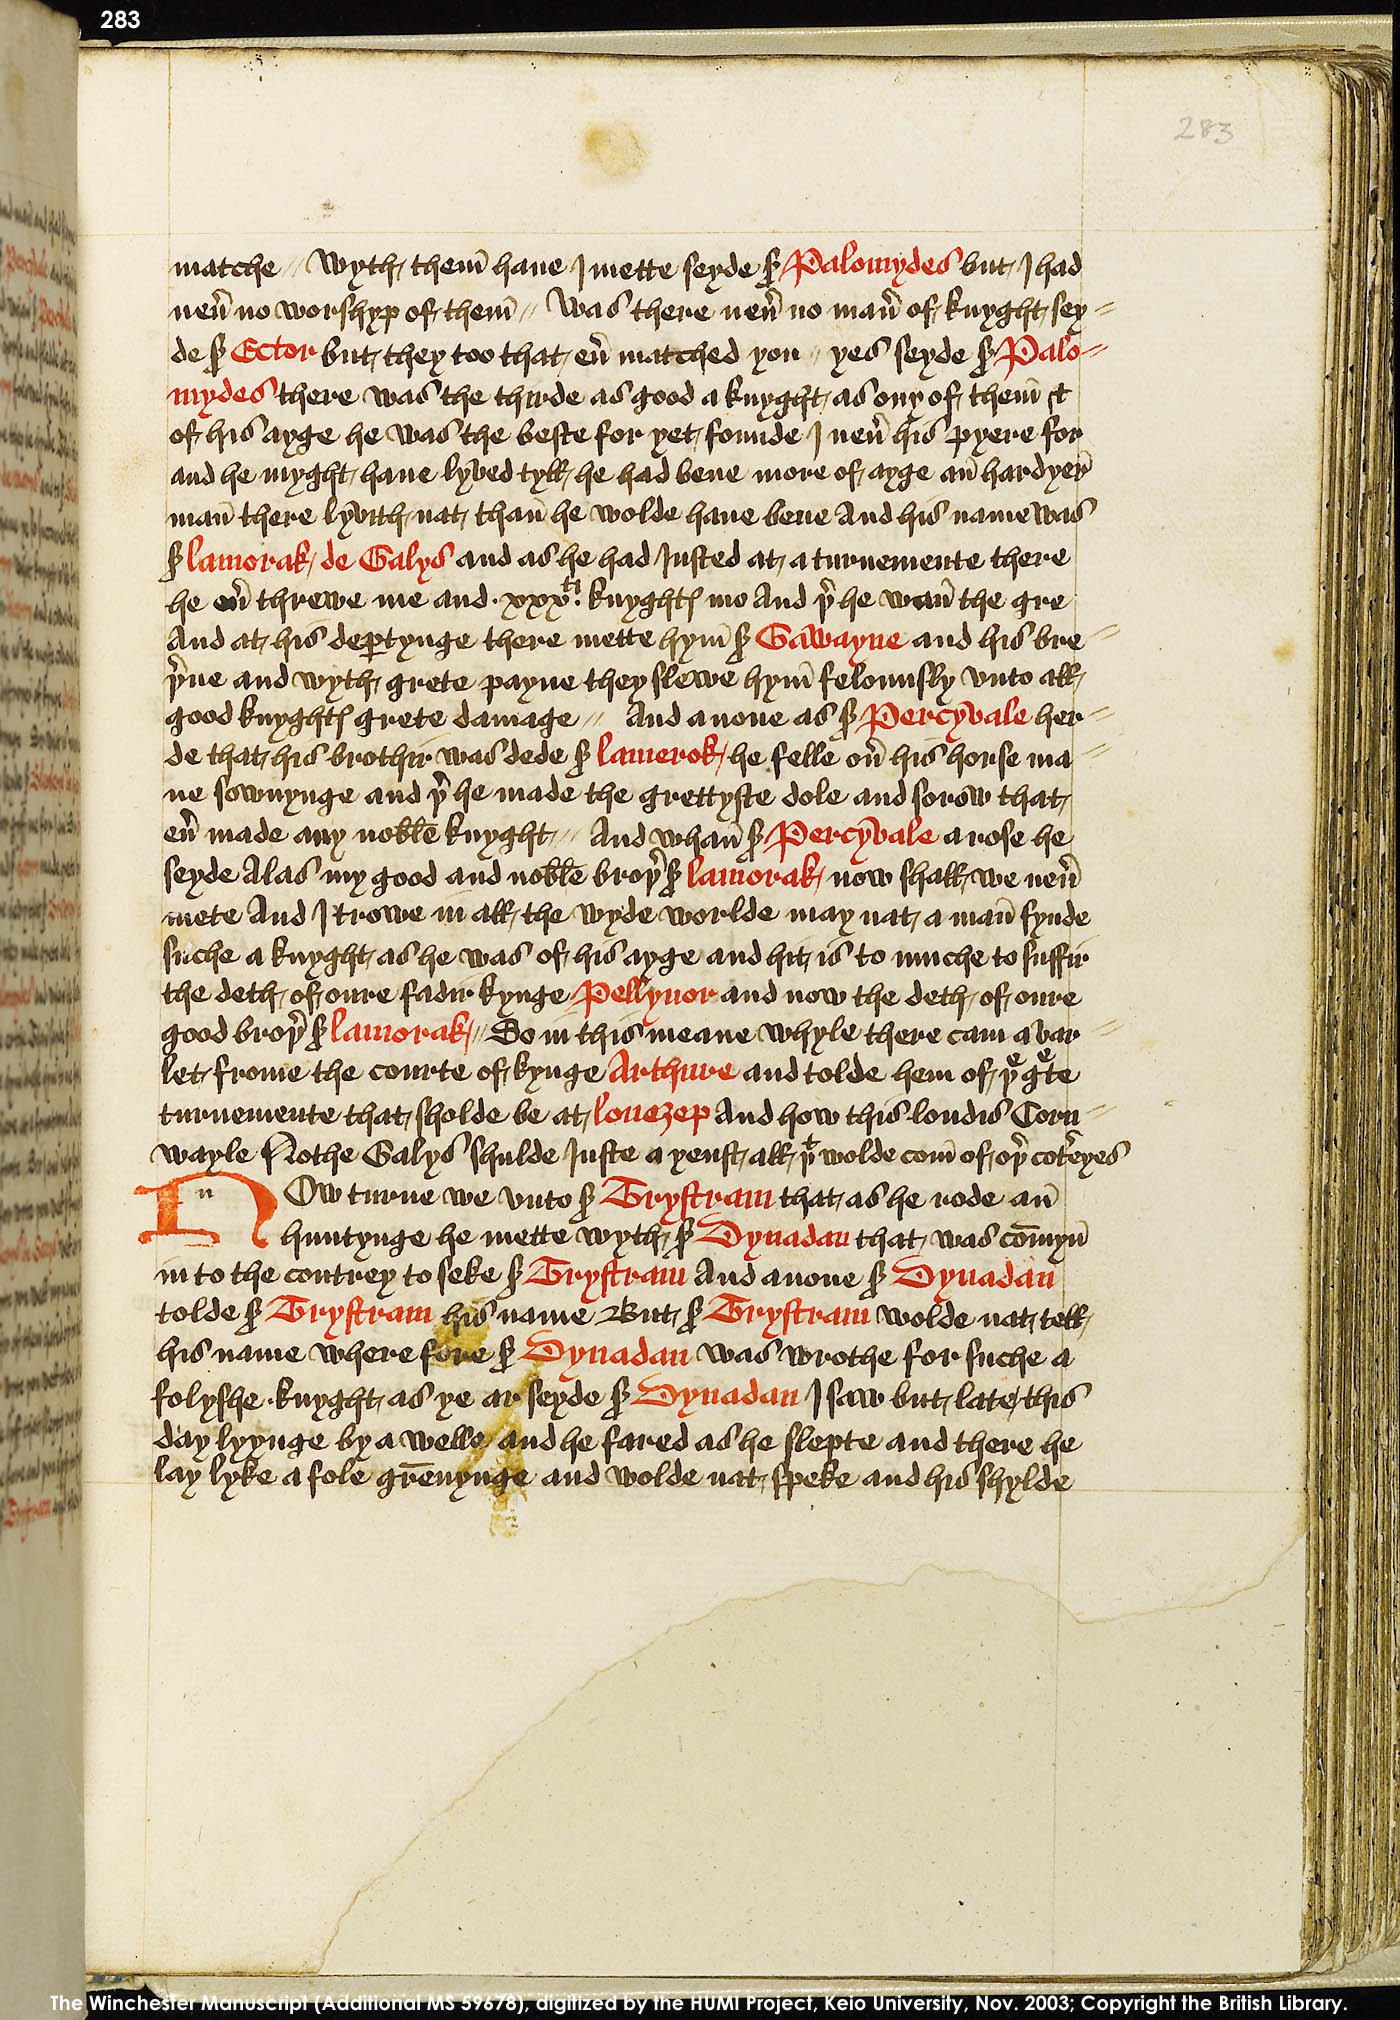 283
283
matche // Wyth them̄ haue I mette seyde ẜ Palomydes but I had
neu̾ no worshyp of them̄ // Was there neu̾ no man̄ of knyght sey=
de ẜ Ector but they too that eu̾ matched you // yes seyde ẜ Palo=
mydes there was the thirde as good a knyght as ony of them̄ &
of his ayge he was the beste for yet founde I neu̾ his pyere for
and he myght haue lyved tyll he had bene more of ayge an̄ hardyer̄
man̄ there lyvith nat than̄ he wolde haue bene And his name was
ẜ lamorak de Galys and as he had Justed at a turnemente there
he ou̾ threwe me and · xxxᵗⁱ · knyghtꝭ mo And þ̾ he wan̄ the gre
And at his deꝑtynge there mette hym̄ ẜ Gawayne and his bre=
þ̾ne and wyth grete payne they slewe hym̄ felounsly vnto all
good knyghtꝭ grete damage // And anone as ẜ Percyvale her=
de that his brothir was dede ẜ lamerok he felle ou̾ his horse ma=
ne sownynge and þ̾ he made the grettyste dole and sorow that
eu̾ made any noble knyght // And whan̄ ẜ Percyvale arose he
seyde Alas my good and noble broþ̾ ẜ lamorak now shall we neu̾
mete And I trowe in all the wyde worlde may nat a man̄ fynde
suche a knyght as he was of his ayge and hit is to muche to suffir
the deth of oure fadir kynge Pellynor and now the deth of oure
good broþ̾ ẜ lamorak // So in this meane whyle there cam a var=
let frome the courte of kynge Arthure and tolde hem of þᵉ gᵉte
turnemente that sholde be at louezep And how this londis Corn=
wayle & Northe Galys shulde Juste ayenst all þᵗ wolde com̄ of oþ̾ cot̾eyes
n
NOw turne we vnto ẜ Trystram that as he rode an̄
huntynge he mette wyth ẜ Dynadan that was com̄yn̄
in to the contrey to seke ẜ Trystram And anone ẜ Dynadan
tolde ẜ Trystram his name But ẜ Trystram wolde nat tell
his name where fore ẜ Dynadan was wrothe for suche a
folyshe · knyght as ye ar seyde ẜ Dynadan I saw but late this
day lyynge by a welle and he fared as he slepte and there he
lay lyke a fole gren̄ynge and wolde nat speke and his shylde
The Winchester Manuscript (Additional MS 59678), digitized by the HUMI Project, Keio University, Nov. 2003; Copyright the British Library.